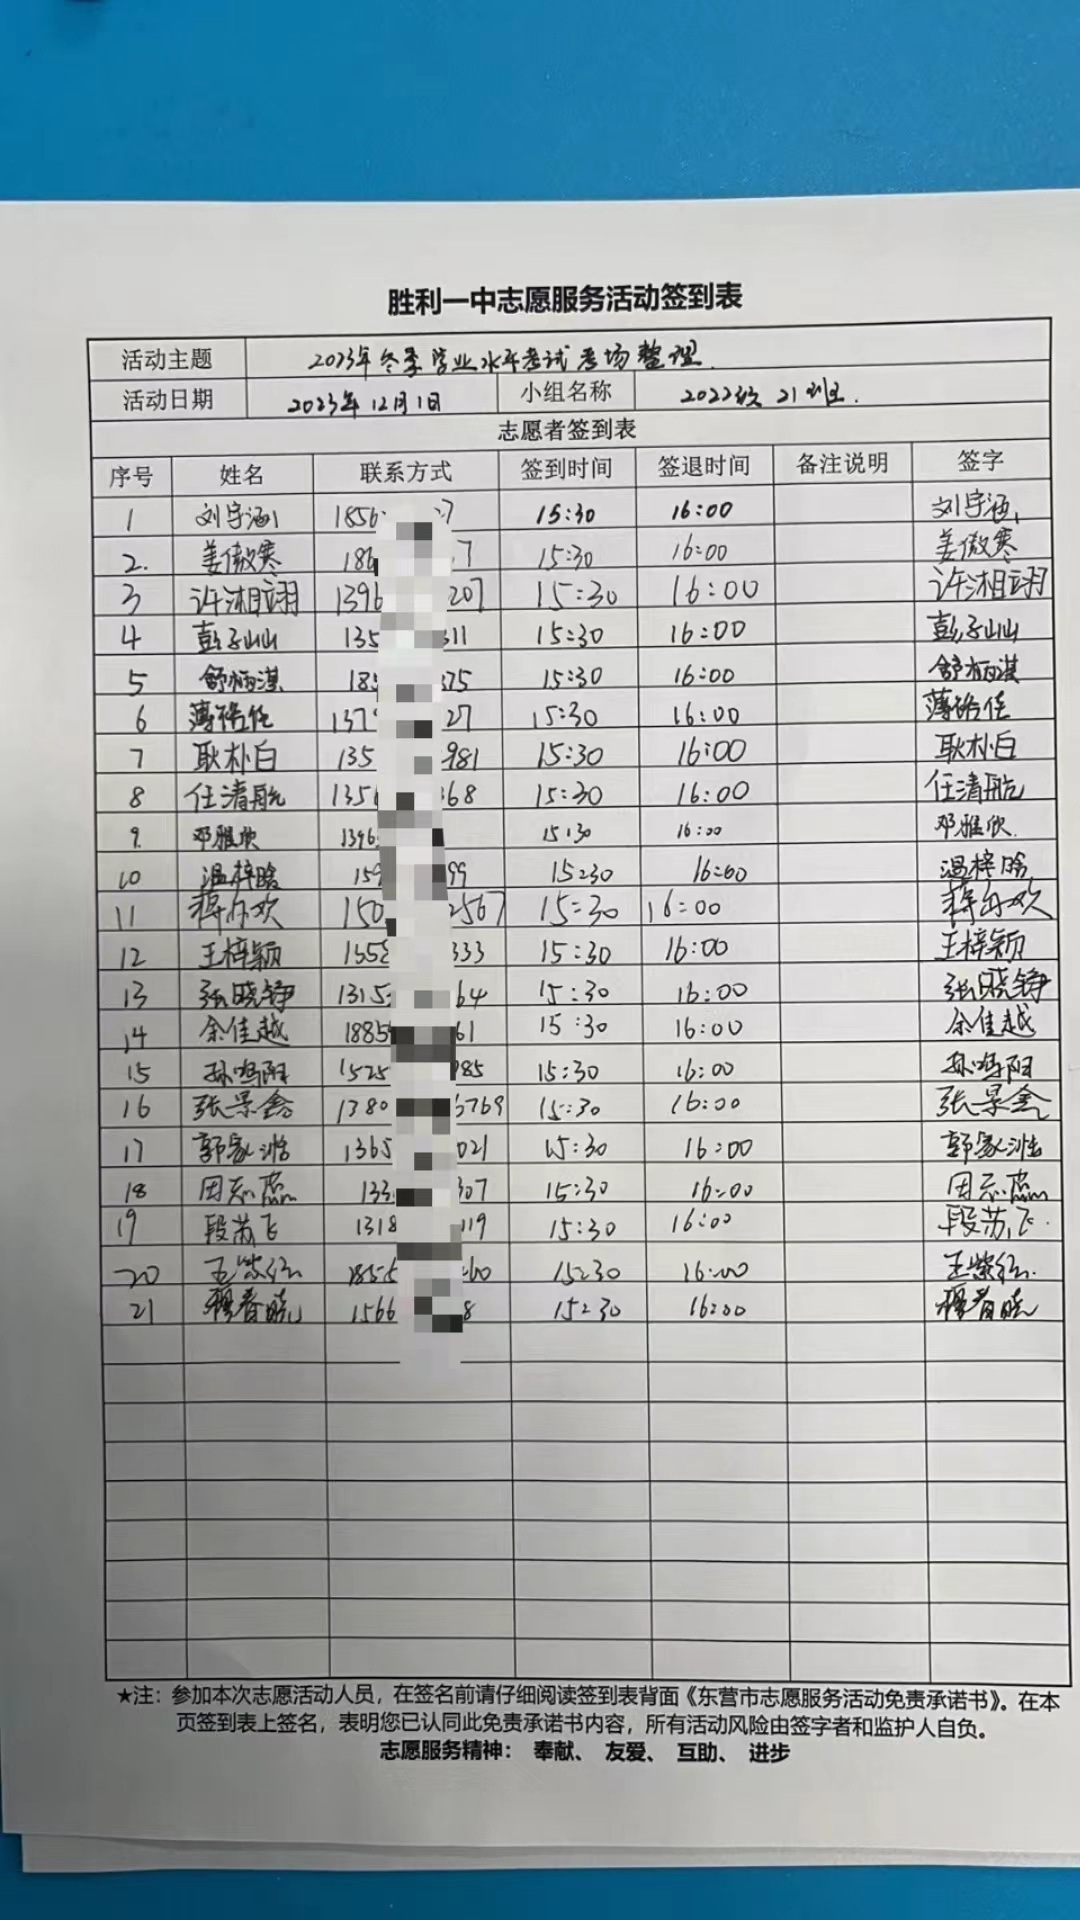 胜利一中志愿服务活动签到表
活动主题 2023年冬季学业水平考试考场整理.
活动日期 2023年12月1日 小组名称 2022级 21班.
志愿者签到表
序号 姓名 联系方式 签到时间 签退时间 备注说明 签字
1 刘宇涵 1856 7 15:30 16:00 刘宇涵
2. 姜傲寒 186 7 15:30 16:00 姜傲寒
3 许湘翊 1396 207 15:30 16:00 许湘翊
4 彭子山山 135 311 15:30 16:00 彭子山山
5 舒炳淇 185 375 15:30 16:00 舒炳淇
6 薄皓任 137 27 15:30 16:00 薄皓任
7 耿朴白 135 981 15:30 16:00 耿朴白
8 任清航 135 368 15:30 16:00 任清航
9. 邓雅欣 1396 15:30 16:00 邓雅欣.
10 温梓晗 159 99 15:30 16:00 温梓晗
11 150 2567 15:30 16:00
12 王梓颖 1558 333 15:30 16:00 王梓颖
13 张晓铮 1315 64 15:30 16:00 张晓铮
14 余佳越 1885 61 15:30 16:00 余佳越
15 孙鸣阳 1525 985 15:30 16:00 孙鸣阳
16 张景 1380 6769 15:30 16:00 张景
17 郭家 1365 021 15:30 16:00 郭家
18 田志 133 307 15:30 16:00 田志
19 段苏飞 1318 119 15:30 16:00 段苏飞.
20 王紫 1855 60 15:30 16:00 王紫
21 穆春晓 1566 8 15:30 16:00 穆春晓
★注：参加本次志愿活动人员，在签名前请仔细阅读签到表背面《东营市志愿服务活动免责承诺书》。在本
页签到表上签名，表明您已认同此免责承诺书内容，所有活动风险由签字者和监护人自负。
志愿服务精神： 奉献、 友爱、 互助、 进步